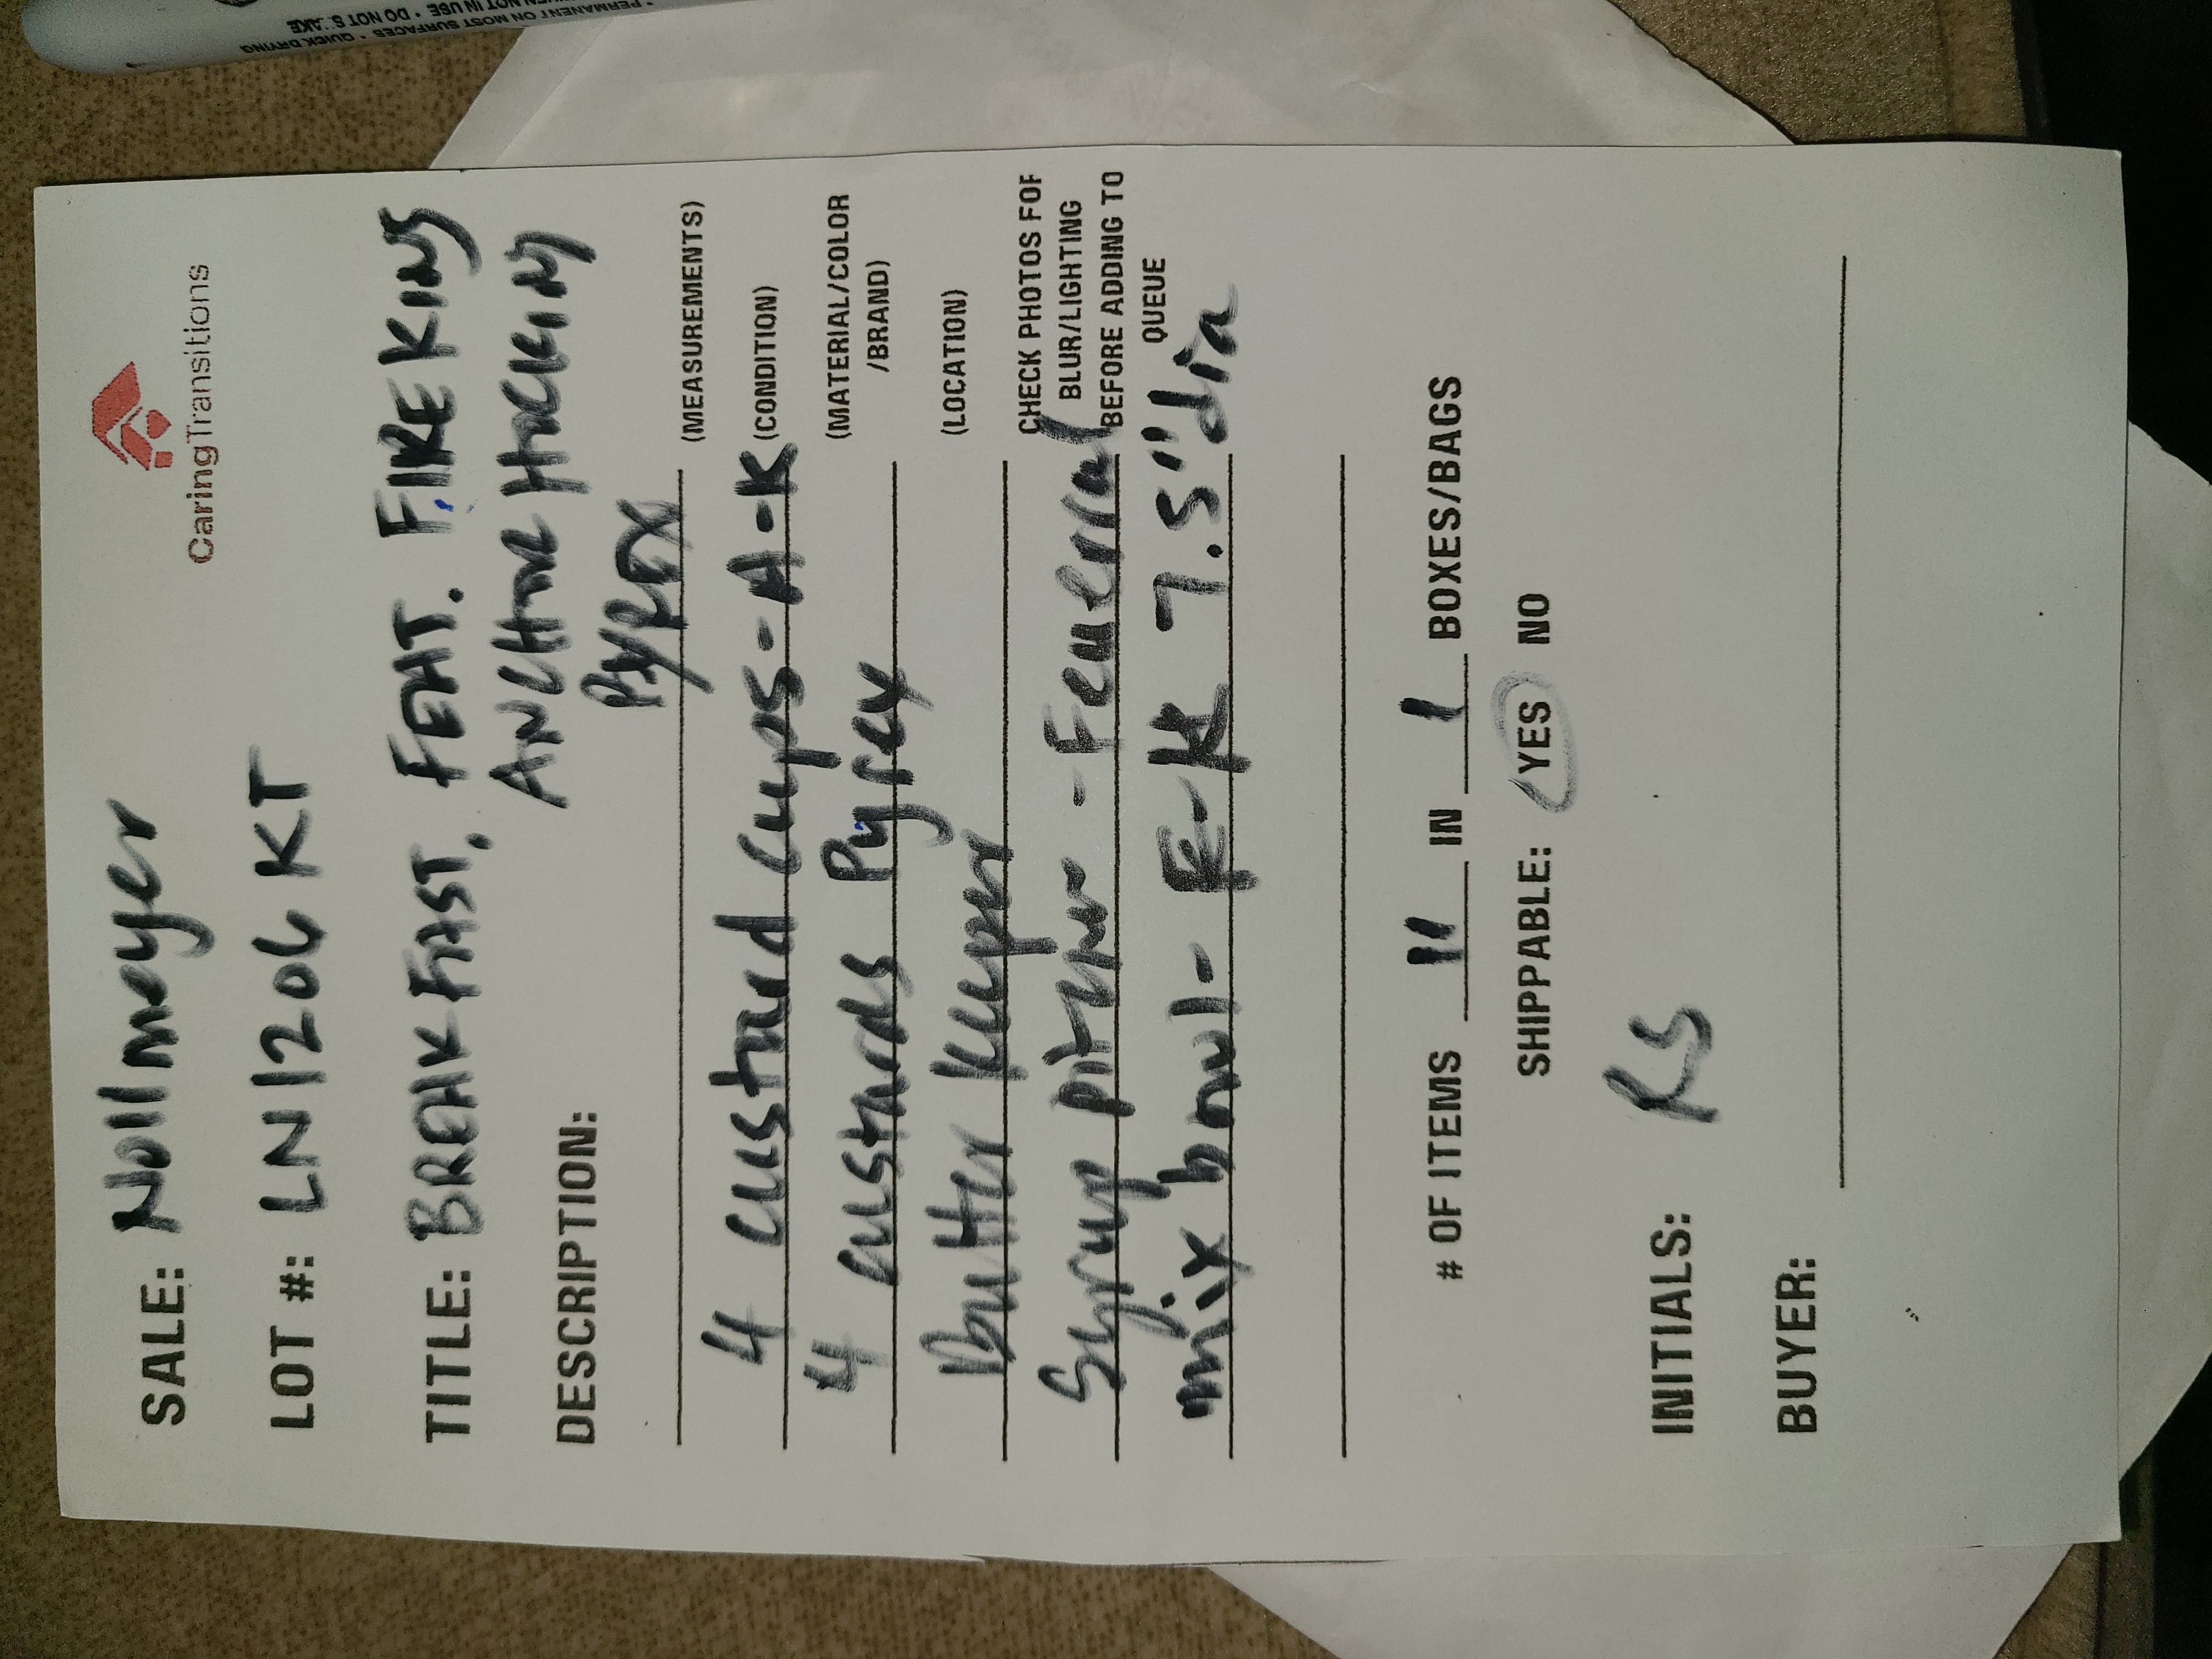 CaringTransitions
SALE: Nollmeyer
LOT #: LN1206 KT
TITLE: BREAKFAST, FEAT. FIRE KING
ANCHOR HOCKING
PYREX
DESCRIPTION:
(MEASUREMENTS)
4 custard cups - A-K
(CONDITION)
4 custards Pyrex
(MATERIAL/COLOR
/BRAND)
Butter keeper
(LOCATION)
Syrup pitcher - Federal
CHECK PHOTOS FOR
BLUR/LIGHTING
BEFORE ADDING TO
QUEUE
mix bowl - F-K 7.5" dia
# OF ITEMS 11 IN 1 BOXES/BAGS
SHIPPABLE: YES NO
INITIALS: RS
BUYER:
• PERMANENT ON MOST SURFACES • QUICK DRYING
NOT IN USE • DO NOT